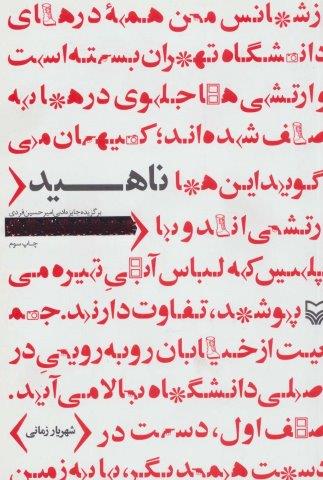 ازشانس من همهٔ درهای
دانشگاه تهران بسته است
وارتشی ها جلوی درها به
صف شده اند؛ کیهان می
گوید این ها
ناهید
ارتشی اند و با
برگزیده جایزه ادبی امیرحسین فردی
چاپ سوم
پلیس که لباس آبی تیره می
پوشند، تفاوت دارند. جمع
یت از خیابان روبه رویی در
اصلی دانشگاه بالا می آید.
صف اول، دست در
شهریار زمانی
دست همدیگر، پا به زمین